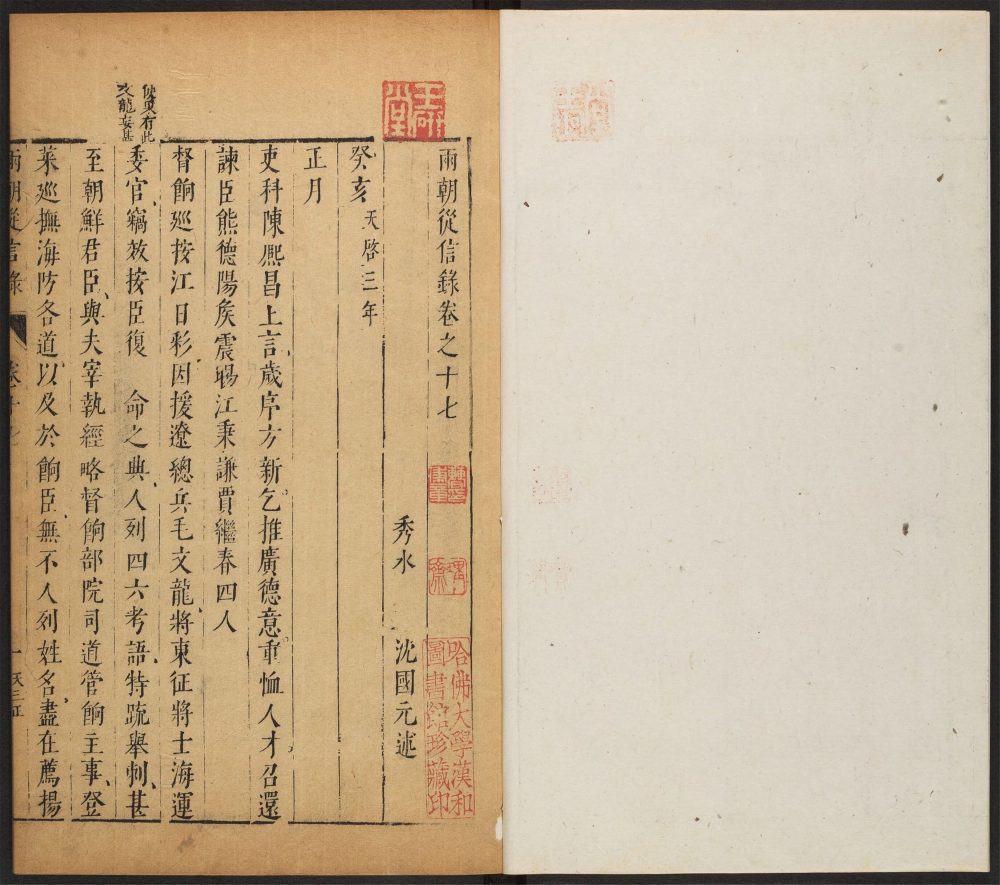 兩朝從信錄卷之十七
秀水 沈國元述
癸亥 天啓三年
正月
吏科陳熈昌上言歲序方新乞推廣德意重恤人才召還
諫臣熊德陽矦震暘江秉謙賈繼春四人
督餉廵按江日彩因援遼總兵毛文龍將東征將士海運
委官竊效按臣復 命之典人列四六考語特䟽舉刺甚
至朝鮮君臣與夫宰執經略督餉部院司道管餉主事登
萊廵撫海防各道以及於餉臣無不人列姓名盡在薦揚
兩朝從信錄 卷十七 一 天三正
有此
文龍
哈佛大學漢和
圖書館珍藏印